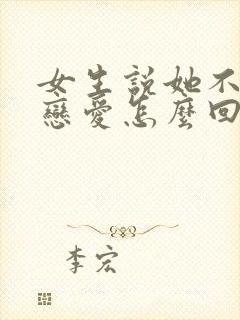 女生説她不
戀愛怎麼回
李宏